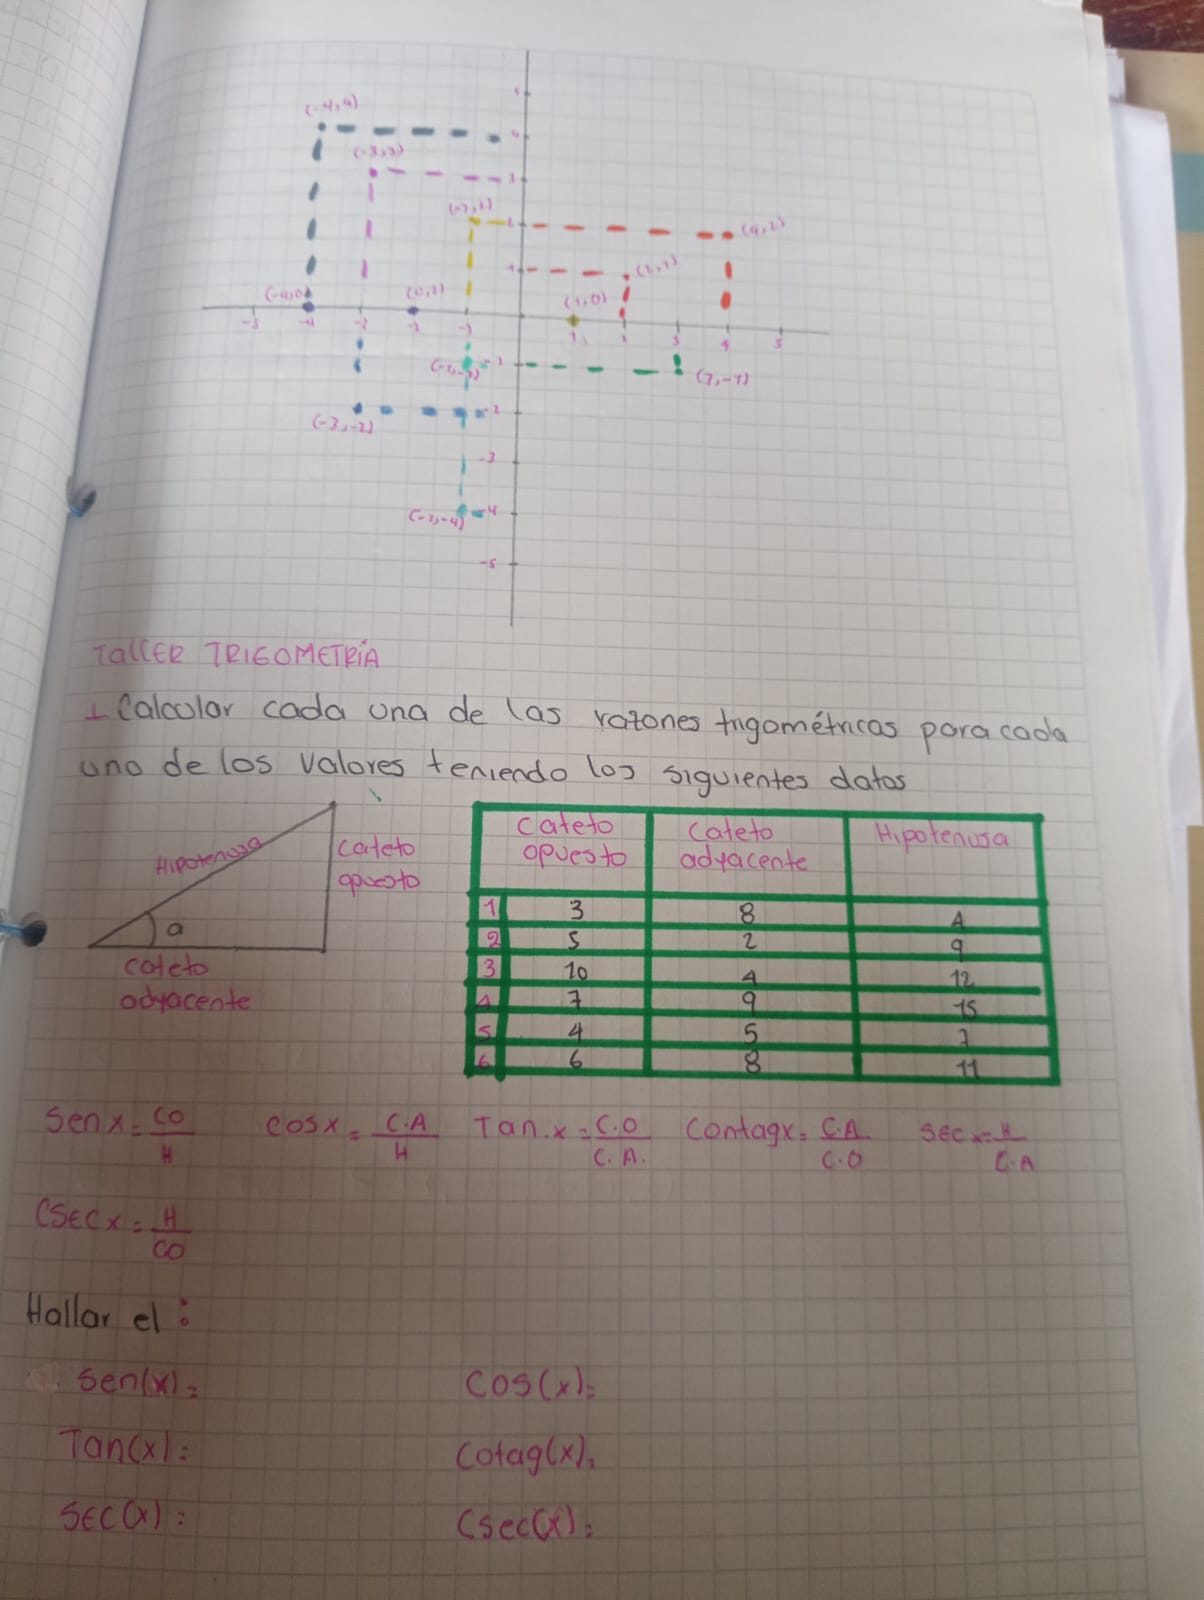 5
(-4,4)
4
(-3,3)
3
(4,2)
1
(-4,0)
(0,2)
(1,0)
-5 -4 -2 -1 1 3 4 5
-1
(3,-1)
-2
(-3,-2)
-3
(-1,-4) -4
-5
TallER TRIGOMETRÍA
1 Calcular cada una de las razones trigométricas para cada
uno de los valores teniendo los siguientes datos
Hipotenusa
cateto
opuesto
a
cateto
adyacente
Cateto opuesto Cateto adyacente Hipotenusa
1 3 8 4
2 5 2 9
3 10 4 12
4 7 9 15
5 4 5 7
6 6 8 11
Sen x = CO/H cos x = C.A/H Tan. x = C.O/C.A. Contag x = C.A/C.O SEC x = H/C.A
CSEC x = H/CO
Hallar el :
Sen(x) = COS(x) =
Tan(x) = Cotag(x) =
SEC(x) = Csec(x) =